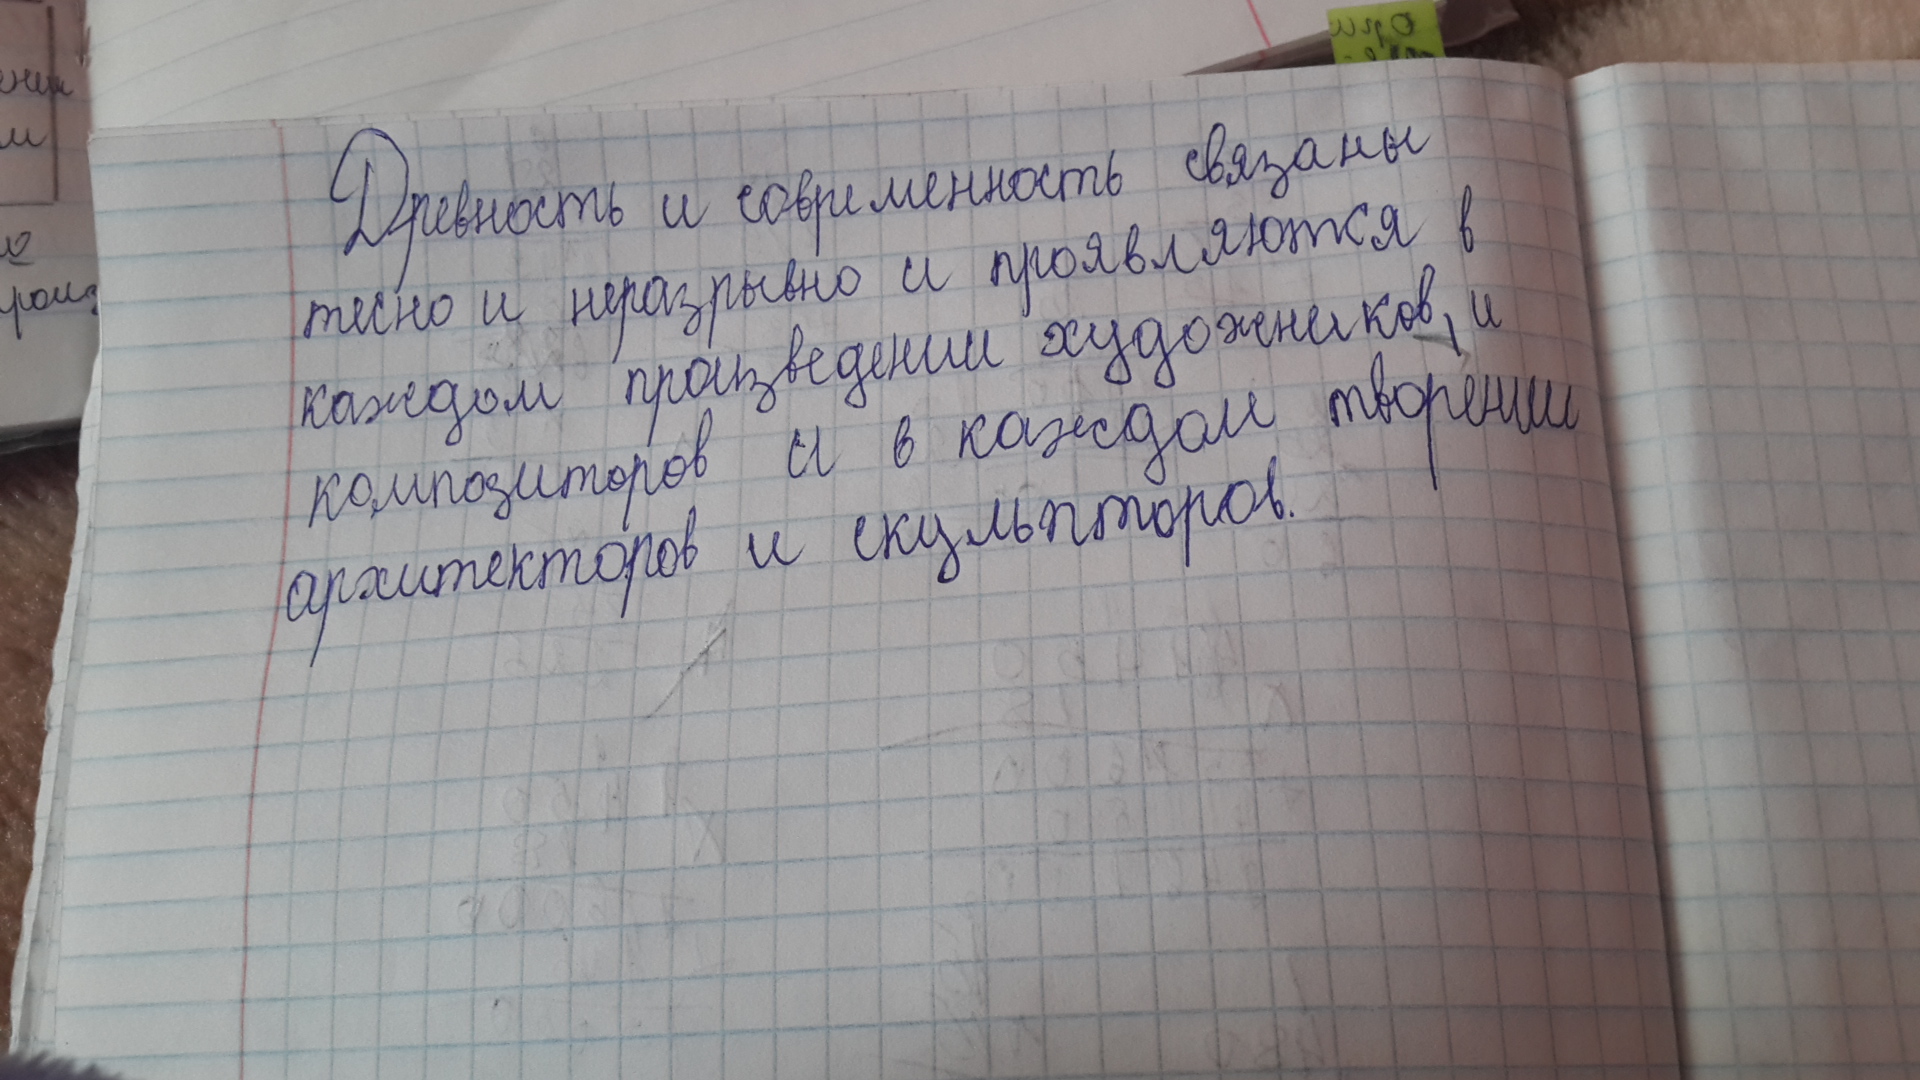 Древность и современность связаны
тесно и неразрывно и проявляются в
каждом произведении художников, и
композиторов и в каждом творении
архитекторов и скульпторов.